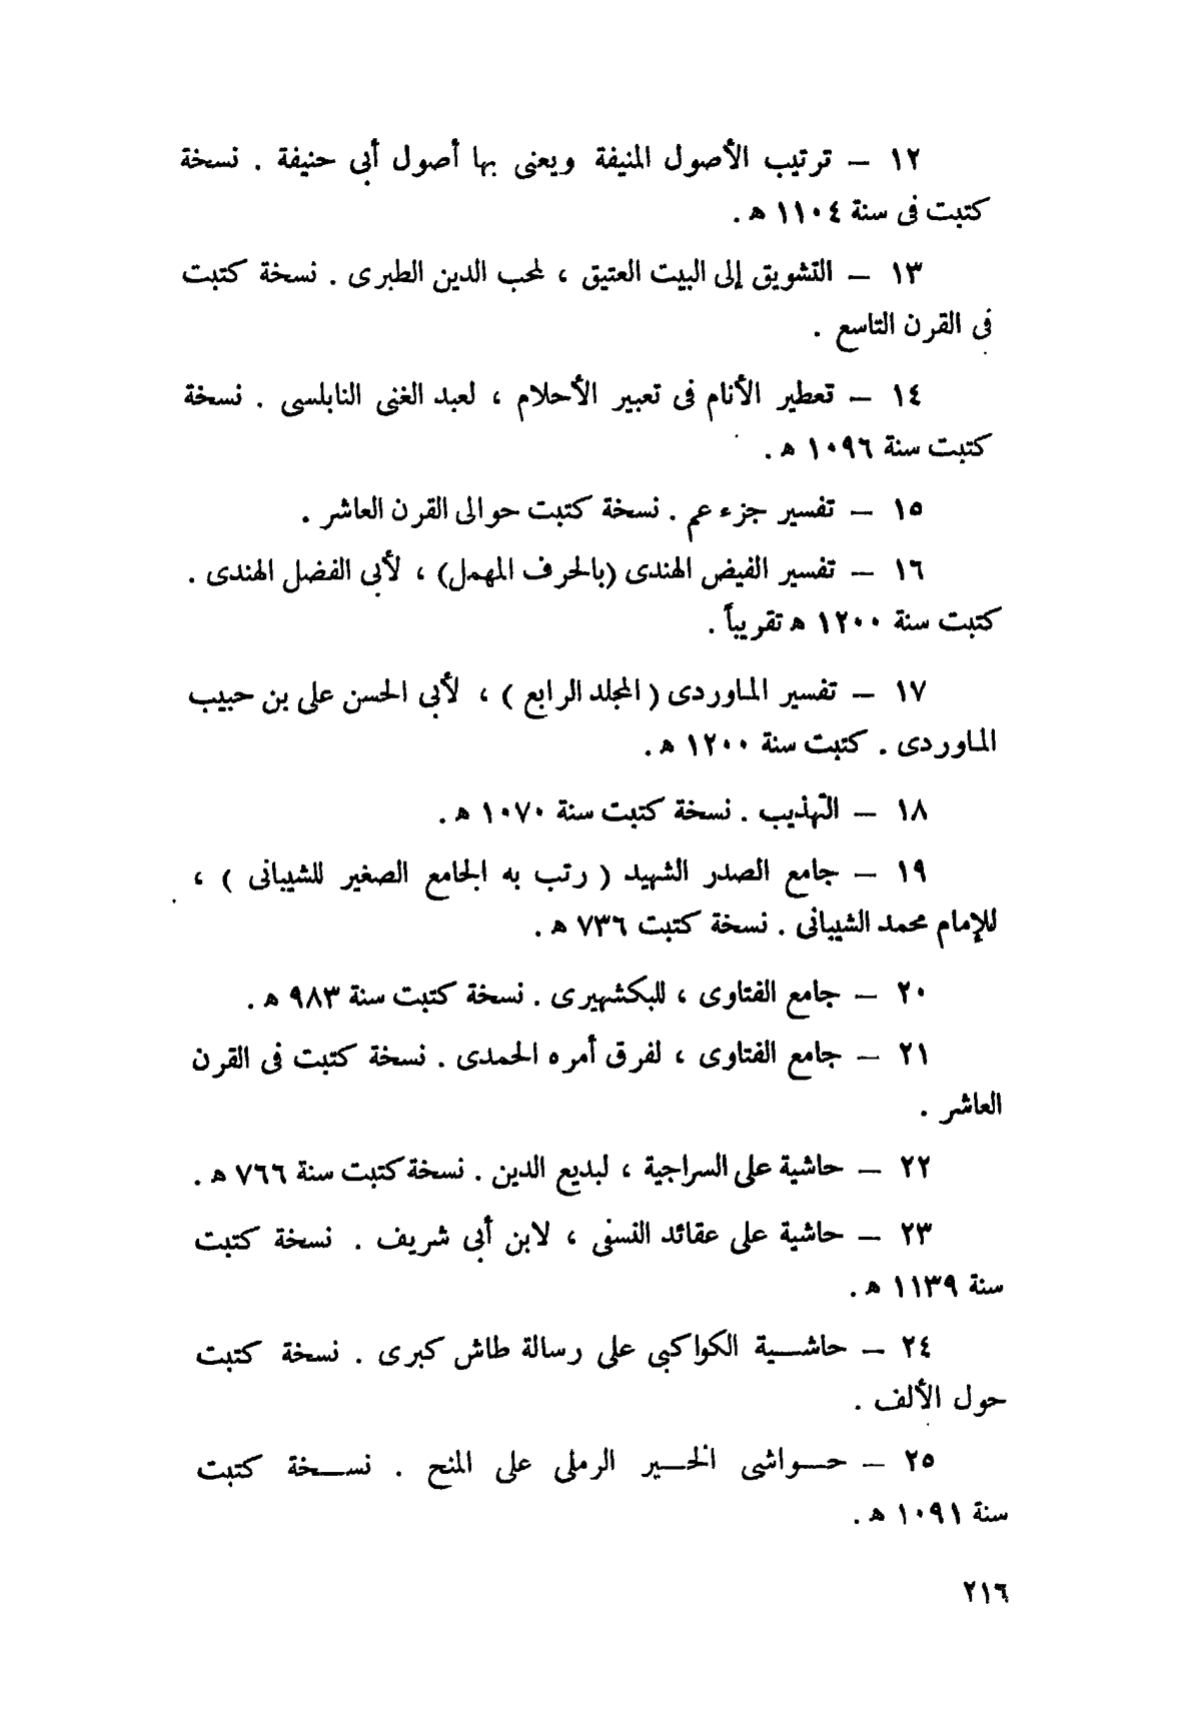 ١٢ — ترتيب الأصول المنيفة ويعنى بها أصول أبى حنيفة . نسخة
كتبت فى سنة ١١٠٤ ه .
١٣ — التشويق إلى البيت العتيق ، لمحب الدين الطبرى . نسخة كتبت
فى القرن التاسع .
١٤ — تعطير الأنام فى تعبير الأحلام ، لعبد الغنى النابلسى . نسخة
كتبت سنة ١٠٩٦ ه .
١٥ — تفسير جزء عم . نسخة كتبت حوالى القرن العاشر .
١٦ — تفسير الفيض الهندى (بالحرف المهمل) ، لأبى الفضل الهندى .
كتبت سنة ١٢٠٠ ه تقريباً .
١٧ — تفسير الماوردى ( المجلد الرابع ) ، لأبى الحسن على بن حبيب
الماوردى . كتبت سنة ١٢٠٠ ه .
١٨ — التهذيب . نسخة كتبت سنة ١٠٧٠ ه .
١٩ — جامع الصدر الشهيد ( رتب به الجامع الصغير للشيبانى ) ،
للإمام محمد الشيبانى . نسخة كتبت ٧٣٦ ه .
٢٠ — جامع الفتاوى ، للبكشهيرى . نسخة كتبت سنة ٩٨٣ ه .
٢١ — جامع الفتاوى ، لفرق أمره الحمدى . نسخة كتبت فى القرن
العاشر .
٢٢ — حاشية على السراجية ، لبديع الدين . نسخة كتبت سنة ٧٦٦ ه .
٢٣ — حاشية على عقائد النسفى ، لابن أبى شريف . نسخة كتبت
سنة ١١٣٩ ه .
٢٤ — حاشية الكواكبى على رسالة طاش كبرى . نسخة كتبت
حول الألف .
٢٥ — حواشى الخير الرملى على المنح . نسخة كتبت
سنة ١٠٩١ ه .
٢١٦